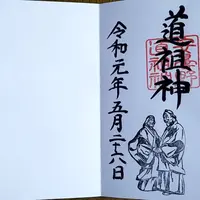 道祖神
令和元年五月二十六日